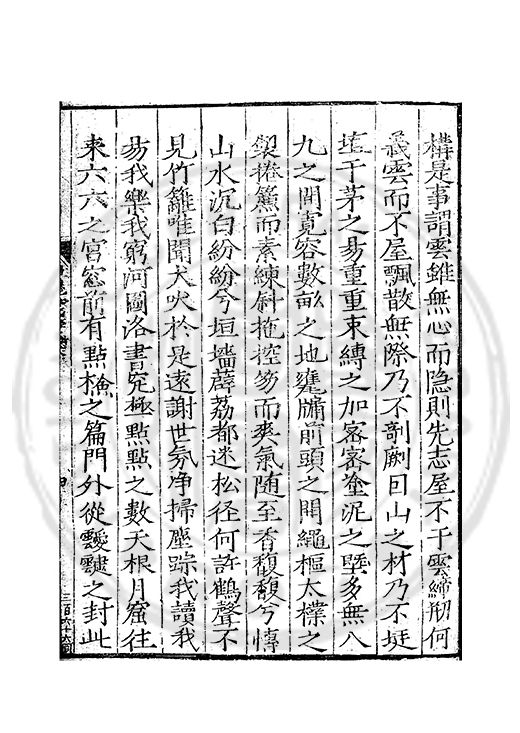 構是事謂雲雖無心而隐則先志屋不于雲締剏何
義雲而不屋飄散無際乃不剞劂囙山之材乃不埏
埴于茅之昜重重束縛之加宻宻塗泥之墍多無八
九之間寛容数畝之地甕牖前頭之閒繩樞太樸之
製捲簾而素練斜拖控笏而爽氣随至香馥馥兮慱
山水沉白紛紛兮垣墻薜荔都迷松径何許鶴聲不
見竹籬唯聞犬吠扵是遠謝世氛净掃塵踪我讀我
昜我樂我窮河圖洛書究極點點之數天根月窟往
来六六之宫窓前有點檢之篇門外從靉靆之封此